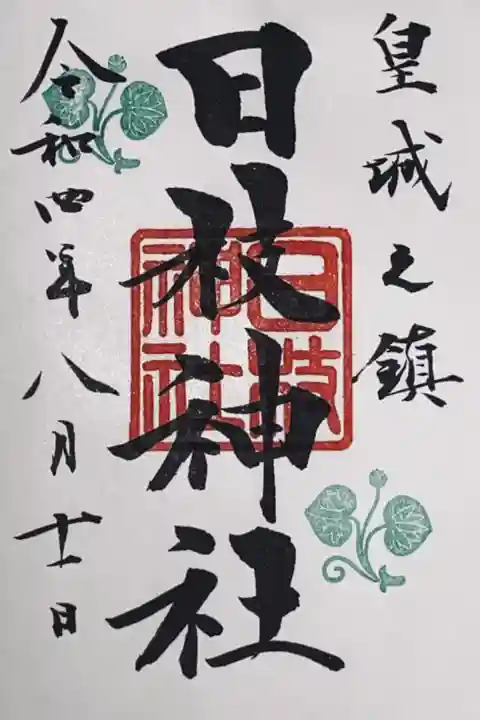 皇城之鎮
日枝神社
日枝神社
令和四年八月十一日